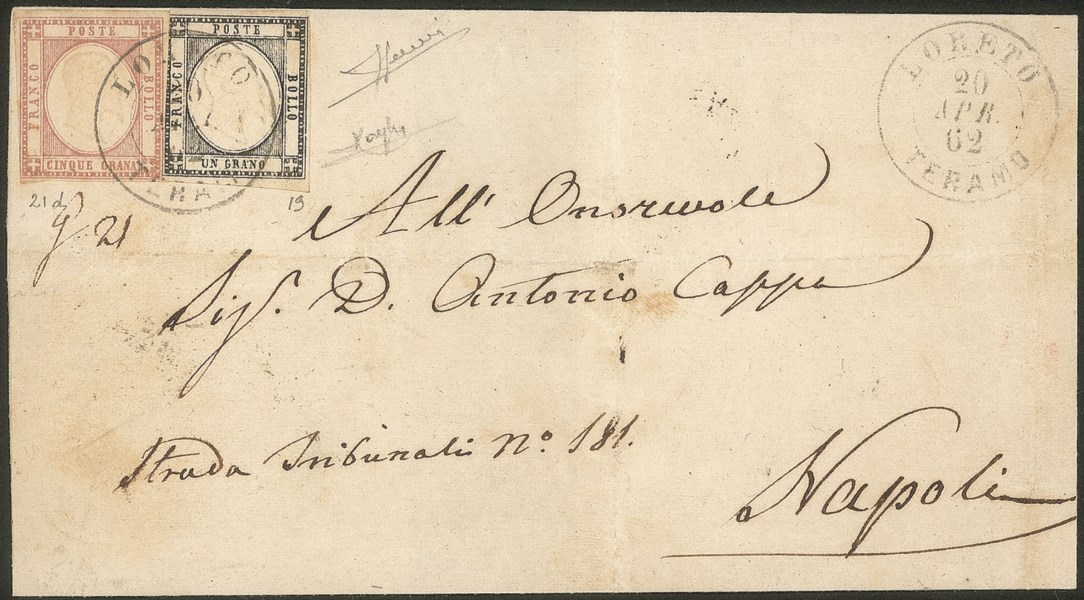 POSTE
FRANCO
BOLLO
CINQUE GRANA
POSTE
FRANCO
BOLLO
UN GRANO
LORETO
20
APR.
62
TERAMO
21 d
19
21
All' Onorevole
Sigr. D. Antonio Cappa
Strada Tribunali Nº 181.
Napoli